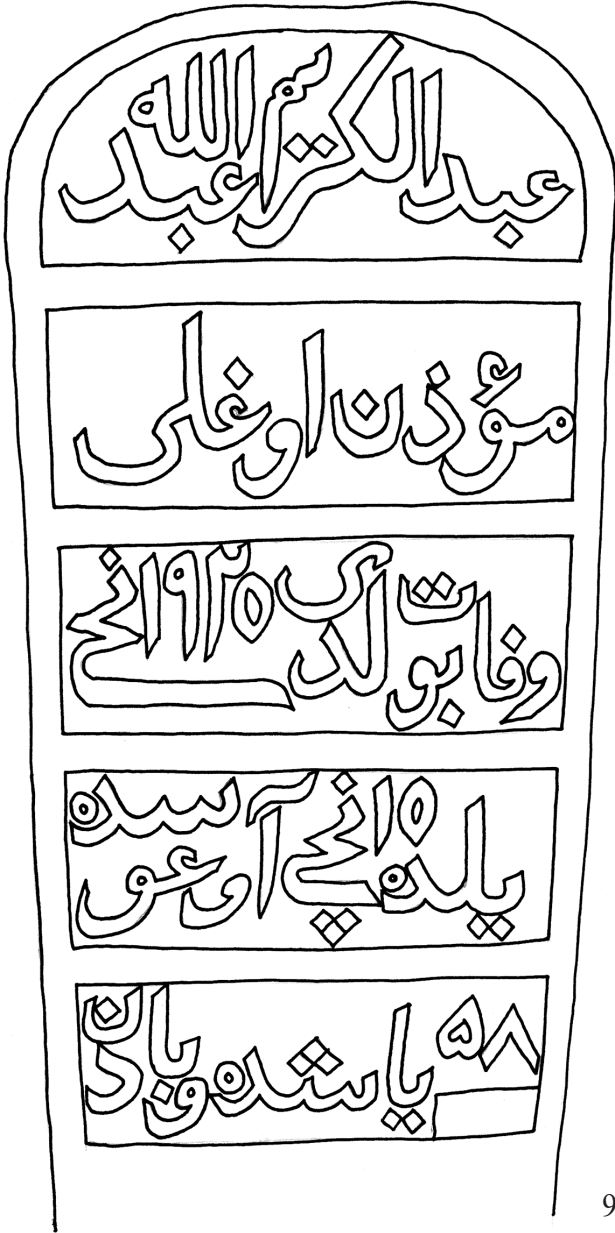 عبدالكريم عبدالله
مؤذن اوغلى
وفات بولدى ١٩٢٥نچى
يلده ١٥نچى آوغوسده
٥٨ ياشده وبادن
9